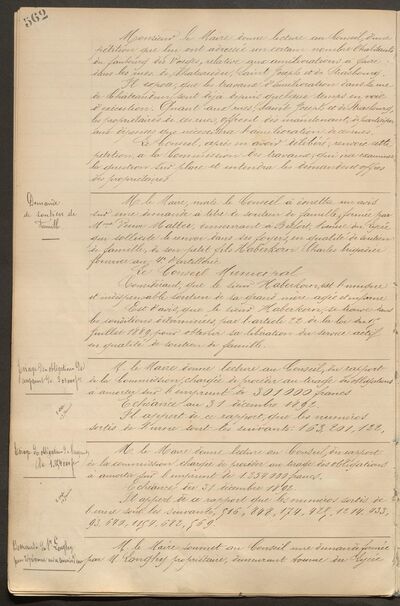 562
Monsieur le Maire donne lecture au Conseil, d'une
pétition que lui ont adressée un certain nombre d'habitants
du faubourg des Vosges, relative aux améliorations à faire
dans les rues de Chateaudun, Saint Joseph et de Strasbourg.
Il expose, que les travaux d'amélioration dans la rue
de Chateaudun, sont déjà depuis quelque temps en voie
d'exécution. Quant aux rues Saint Joseph et de Strasbourg,
les propriétaires de ces rues, offrent dès maintenant, de participer
aux dépenses que nécessitera l'amélioration de ces rues.
Le Conseil, après en avoir délibéré, renvoie cette
pétition à la Commission des travaux, qui ira examiner
la question sur place et entendra les demandes et offres
des propriétaires.
Demande
de soutien de
famille
M. le Maire, invite le Conseil à émettre un avis
sur une demande à titre de soutien de famille, formée par
Mme Veuve Haller, demeurant à Belfort, avenue du Lycée
qui sollicite le renvoi dans ses foyers, en qualité de soutien
de famille, de son petit fils Haberkorn Charles Eugène
fourrier au 4e d'artillerie.
Le Conseil Municipal
Considérant, que le sieur Haberkorn, est l'unique
et indispensable soutien de sa grand'mère âgée et infirme
Est d'avis, que le sieur Haberkorn, se trouve dans
les conditions déterminées par l'article 22 de la loi du 15
juillet 1889, pour obtenir sa libération du service actif
en qualité de soutien de famille.
Tirage des obligations de
l'emprunt de 301000f
M. le Maire donne lecture au Conseil, du rapport
de la Commission chargée de procéder au tirage des obligations
à amortir sur l'emprunt de 301000 francs
Echéance au 31 décembre 1892
Il appert de ce rapport, que les numéros
sortis de l'urne sont les suivants: 163, 201, 122,
Tirage des obligations de l'emprunt
M. le Maire donne lecture au Conseil du rapport
de la commission chargée de procéder au tirage des obligations
à amortir sur l'emprunt de 1234000 francs.
Echéance du 31 décembre 1892
Il appert de ce rapport que les numéros sortis de
l'urne sont les suivants, 516, 848, 174, 929, 1214, 933,
93, 680, 1194, 582, 569.
Demande de Mr Longhy
M. le Maire soumet au Conseil une demande formée
par M. Longhy propriétaire, demeurant avenue du Lycée